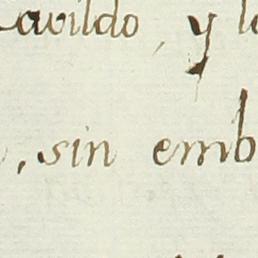 Cavildo, y l
, sin emb